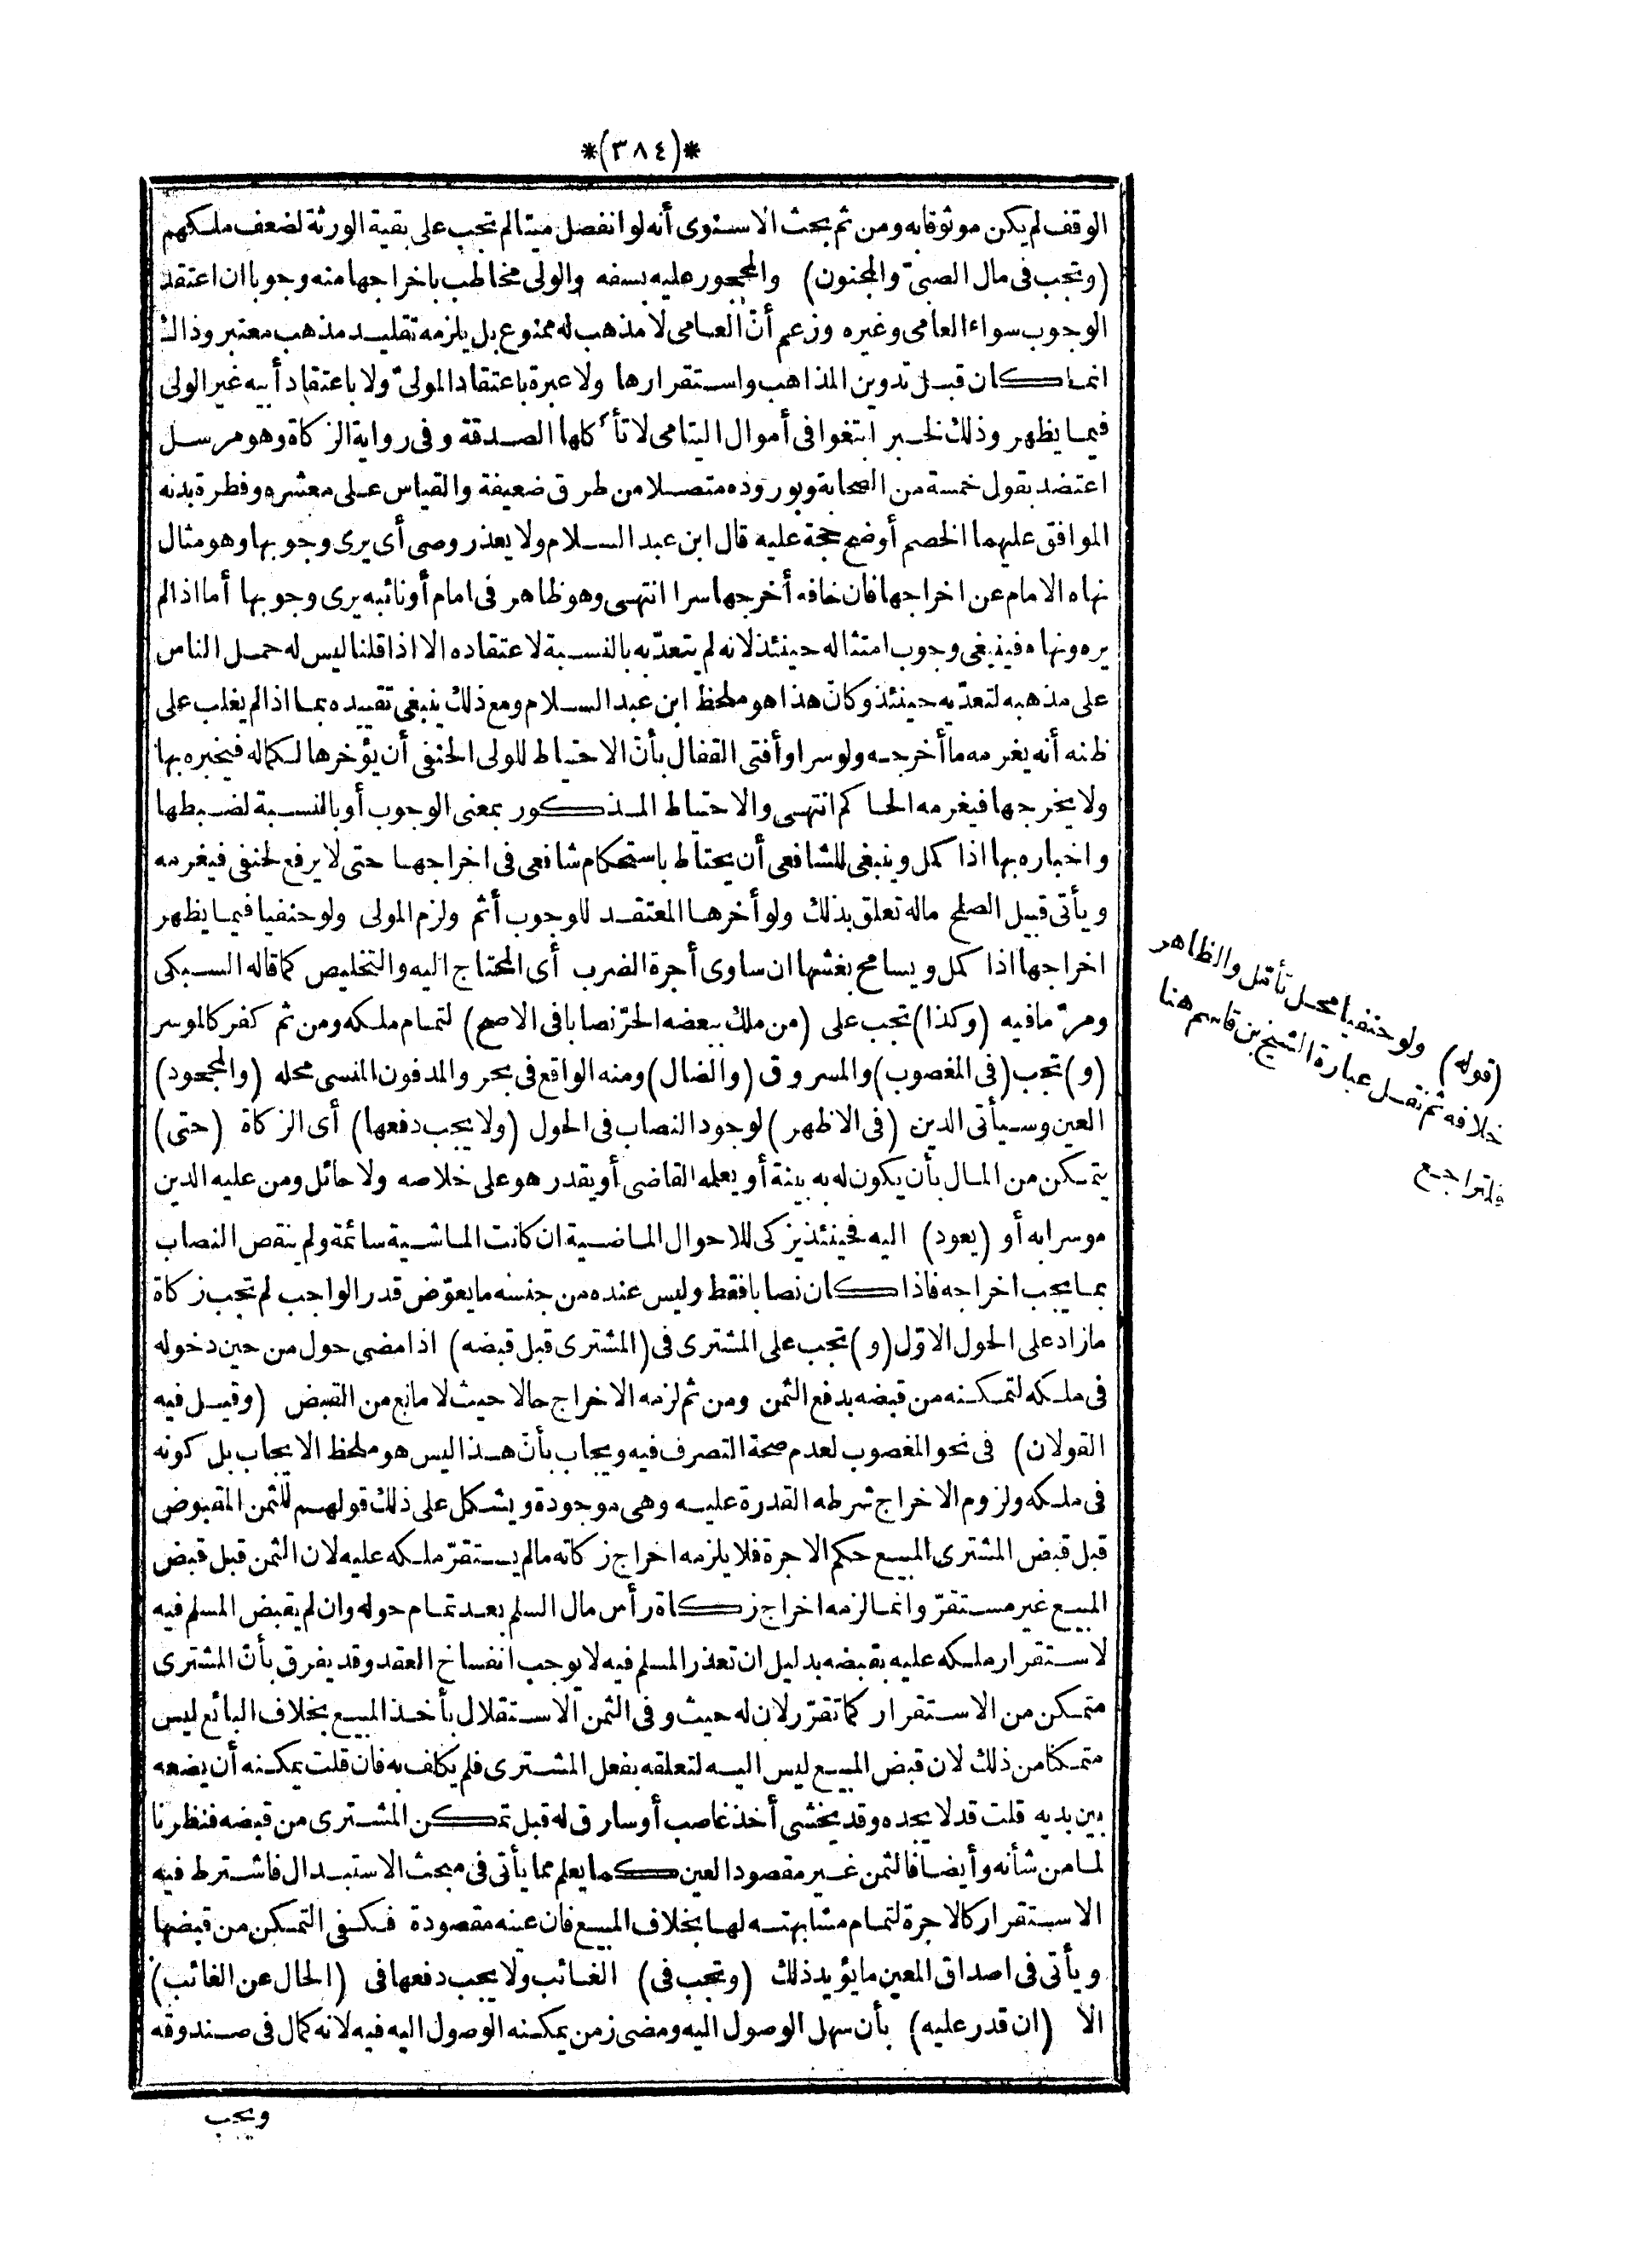 *(٣٨٤)*
الوقف لم يكن موثوقا به ومن ثم بحث الاسنوى أنه لو انفصل ميتا لم تجب على بقية الورثة لضعف ملكهم
(وتجب فى مال الصبىّ والمجنون) والمحجور عليه بسفه والولى مخاطب باخراجها منه وجوبا ان اعتقد
الوجوب سواء العامى وغيره وزعم أنّ العامى لا مذهب له ممنوع بل يلزمه تقليد مذهب معتبر وذاك
انما كان قبل تدوين المذاهب واستقرارها ولا عبرة باعتقاد المولىّ ولا باعتقاد أبيه غير الولى
فيما يظهر وذلك لخبر ابتغوا فى أموال اليتامى لا تأكلها الصدقة وفى رواية الزكاة وهو مرسل
اعتضد بقول خمسة من الصحابة وبوروده متصلا من طرق ضعيفة والقياس على معشره وفطرة بدنه
الموافق عليهما الخصم أوضح حجة عليه قال ابن عبد السلام ولا يعذر وصى أى يرى وجوبها وهو مثال
نهاه الامام عن اخراجها فان خافه أخرجها سرا انتهى وهو ظاهر فى امام أو نائبه يرى وجوبها أما اذا لم
يره ونهاه فينبغى وجوب امتثاله حينئذ لانه لم يتعدّ به بالنسبة لاعتقاده الا اذا قلنا ليس له حمل الناس
على مذهبه لتعدّيه حينئذ وكانّ هذا هو ملحظ ابن عبد السلام ومع ذلك ينبغى تقييده بما اذا لم يغلب على
ظنه أنه يغرمه ما أخرجه ولو سرا وأفتى القفال بأنّ الاحتياط للولى الحنفى أن يؤخرها لكماله فيخبره بها
ولا يخرجها فيغرمه الحاكم انتهى والاحتياط المذكور بمعنى الوجوب أو بالنسبة لضبطها
واخباره بها اذا كمل وينبغى للشافعى أن يحتاط باستحكام شافعى فى اخراجها حتى لا يرفع لحنفى فيغرمه
ويأتى قبيل الصلح ماله تعلق بذلك ولو أخرها المعتقد للوجوب أثم ولزم المولى ولو حنفيا فيما يظهر
اخراجها اذا كمل ويسامح بغشها ان ساوى أجرة الضرب أى المحتاج اليه والتخليص كما قاله السبكى
ومرّ ما فيه (وكذا) تجب على (من ملك ببعضه الحرّ نصابا فى الاصح) لتمام ملكه ومن ثم كفر كالموسر
(و) تجب (فى المغصوب) والمسروق (والضال) ومنه الواقع فى بحر والمدفون المنسى محله (والمجحود)
العين وسيأتى الدين (فى الاظهر) لوجود النصاب فى الحول (ولا يجب دفعها) أى الزكاة (حتى)
يتمكن من المال بأن يكون له به بينة أو يعلمه القاضى أو يقدر هو على خلاصه ولا حائل ومن عليه الدين
موسرا به أو (يعود) اليه فحينئذ يزكى للاحوال الماضية ان كانت الماشية سائمة ولم ينقص النصاب
بما يجب اخراجه فاذا كان نصابا فقط وليس عنده من جنسه ما يعوّض قدر الواجب لم تجب زكاة
ما زاد على الحول الاوّل (و) تجب على المشترى فى (المشترى قبل قبضه) اذا مضى حول من حين دخوله
فى ملكه لتمكنه من قبضه بدفع الثمن ومن ثم لزمه الاخراج حالا حيث لا مانع من القبض (وقيل فيه
القولان) فى نحو المغصوب لعدم صحة التصرف فيه ويجاب بأنّ هذا ليس هو ملحظ الايجاب بل كونه
فى ملكه ولزوم الاخراج شرطه القدرة عليه وهى موجودة ويشكل على ذلك قولهم للثمن المقبوض
قبل قبض المشترى المبيع حكم الاجرة فلا يلزمه اخراج زكاته ما لم يستقرّ ملكه عليه لان الثمن قبل قبض
المبيع غير مستقرّ وانما لزمه اخراج زكاة رأس مال السلم بعد تمام حوله وان لم يقبض المسلم فيه
لاستقرار ملكه عليه بقبضه بدليل ان تعذر المسلم فيه لا يوجب انفساخ العقد وقد يفرق بأنّ المشترى
متمكن من الاستقرار كما تقرّر لان له حيث وفى الثمن الاستقلال بأخذ المبيع بخلاف البائع ليس
متمكنا من ذلك لان قبض المبيع ليس اليه لتعلقه بفعل المشترى فلم يكلف به فان قلت يمكنه أن يضعه
بين يديه قلت قد لا يجده وقد يخشى أخذ غاصب أو سارق له قبل تمكن المشترى من قبضه فنظرنا
لما من شأنه وأيضا فالثمن غير مقصود العين كما يعلم مما يأتى فى مبحث الاستبدال فاشترط فيه
الاستقرار كالاجرة لتمام مشابهته لها بخلاف المبيع فان عينه مقصودة فكفى التمكن من قبضها
ويأتى فى اصداق المعين ما يؤيد ذلك (وتجب فى) الغائب ولا يجب دفعها فى (الحال عن الغائب)
الا (ان قدر عليه) بأن سهل الوصول اليه ومضى زمن يمكنه الوصول اليه فيه لانه كمال فى صندوقه
ويجب
(قوله) ولو حنفيا محل تأمّل والظاهر
خلافه ثم نقل عبارة الشيخ بن قاسم هنا
فلتراجع